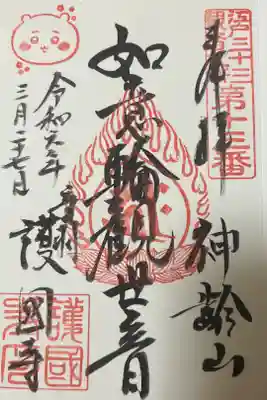 三十三第十三番
奉拝
神齢山
如意輪觀世音
護國寺
令和六年
三月二十七日